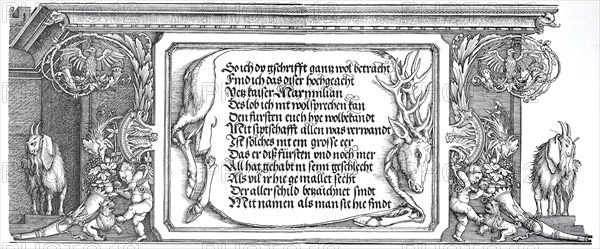 So ich dy gschrifft gantz wol betracht
Find ich das diser hochgeacht
Vey kaiser Maxymilian
Des lob ich nit wolsprechen kan
Den fürsten euch hye wolbekandt
Mit siptschafft allen was verwandt
Ist solches nit ein grosse eer
Das er diß fürsten vnd noch mer
All hat gehabt in seym geschlecht
Als vil ir hie gemallet secht
Der aller schild bezaichnet sindt
Mit namen als man sie hie findt